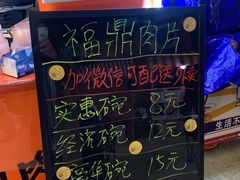 福鼎肉片
加微信可配送外卖
实惠碗 8元
经济碗 12元
豪华碗 15元
生活不